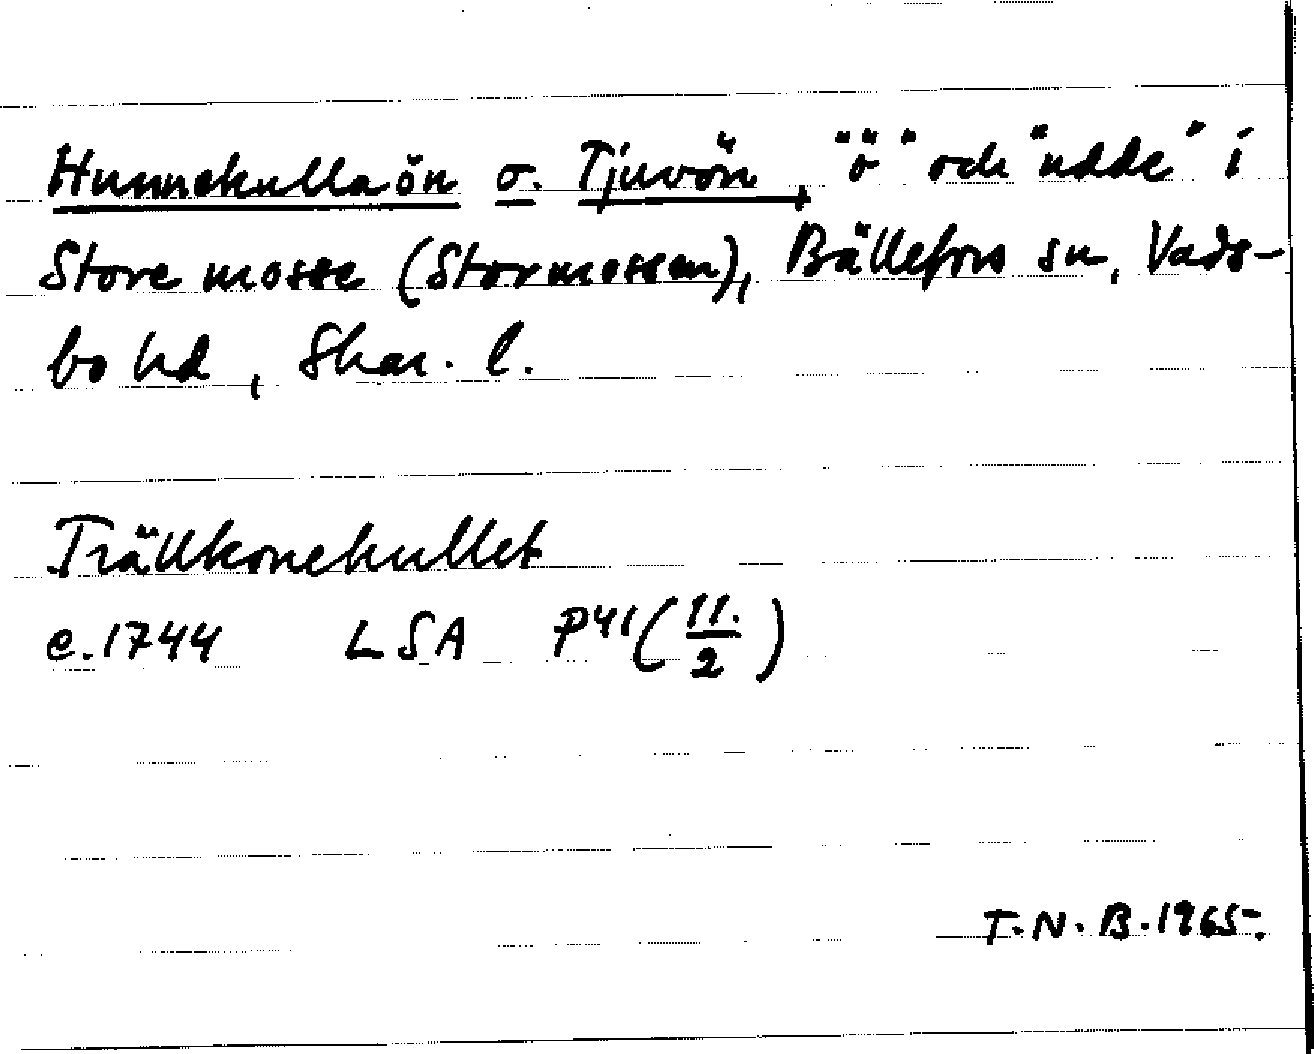 Hunnekullaön o. Tjuvön, "ö" och "udde" i
Store mosse (Stormossen), Bällefors sn, Vads-
bo hd, Skar. l.
Trällkonekullet
c.1744 LSA P41(11./2)
T.N.B.1965.